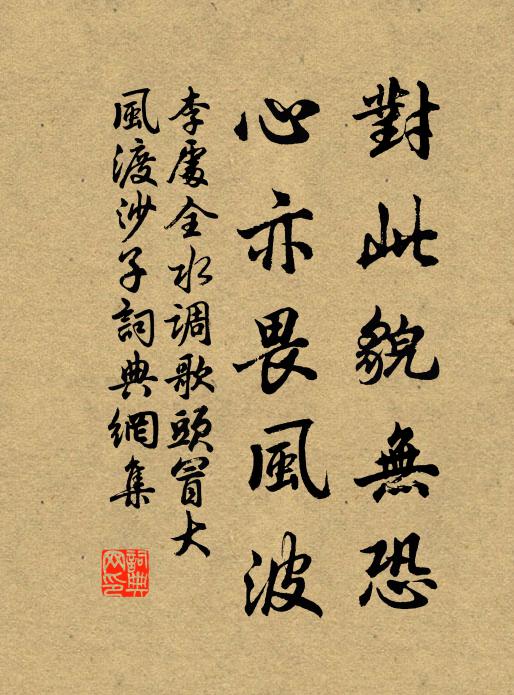 對此貌無恐
心亦畏風波
李處全水调歌頭冒大
風渡沙子詞典網集
詞典
网印